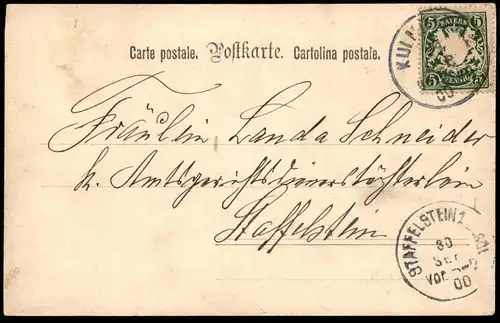 Carte postale. Postkarte. Cartolina postale.
5 BAYERN 5
5 PFENNIG 5
KUL
00
Fräulein Landa Schneider
k. Amtsgerichtsdienerstöchterlein
Staffelstein
STAFFELSTEIN 1
30
SEP
VOR
00